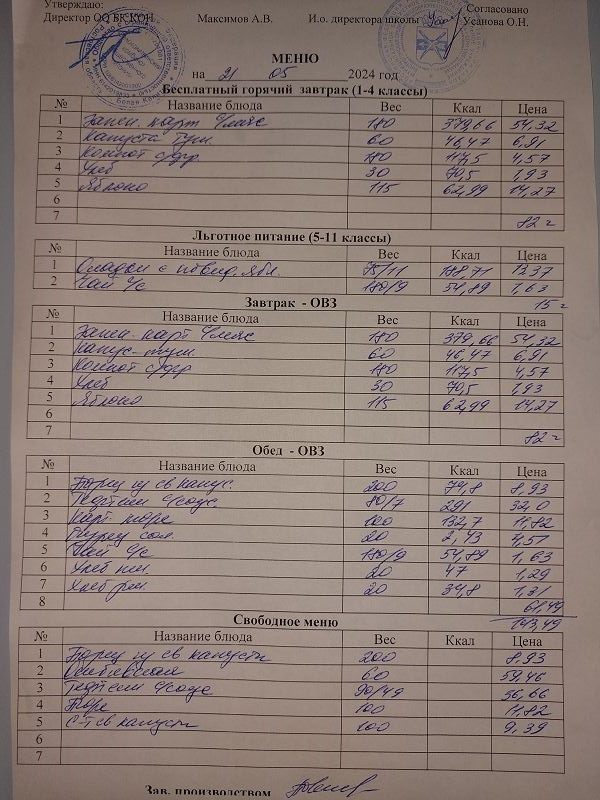 Утверждаю:
Директор ОО БК КОН Максимов А.В. И.о. директора школы Согласовано Усанова О.Н.
МЕНЮ
на 21 05 2024 год
Бесплатный горячий завтрак (1-4 классы)
№ Название блюда Вес Ккал Цена
1 Запек. карт с/мяс 180 379,66 54,32
2 Капуста туш. 60 46,47 6,91
3 Компот с/фр 180 117,5 4,57
4 Хлеб 30 70,5 1,93
5 Яблоко 115 62,99 14,27
6
7 82=
Льготное питание (5-11 классы)
№ Название блюда Вес Ккал Цена
1 Оладьи с повид. ябл. 75/11 13,37
2 Чай с/с 180/9 54,89 1,63
15=
Завтрак - ОВЗ
№ Название блюда Вес Ккал Цена
1 Запек. карт с/мяс 180 379,66 54,32
2 Капус. туш 60 46,47 6,91
3 Компот с/фр 180 117,5 4,57
4 Хлеб 30 70,5 1,93
5 Яблоко 115 62,99 14,27
6
7 82=
Обед - ОВЗ
№ Название блюда Вес Ккал Цена
1 Борщ из св капус. 200 79,8 8,93
2 Тефтели с/соус. 80/7 291 32,0
3 Карт. пюре 100 132,7 11,82
4 Огурец сол. 20 2,43 4,51
5 Чай с/с 180/9 54,89 1,63
6 Хлеб пш. 20 47 1,29
7 Хлеб рж. 20 34,8 1,31
8 61,49
143,49
Свободное меню
№ Название блюда Вес Ккал Цена
1 Борщ из св капусты 200 8,93
2 60 59,46
3 Тефтели с/соус 90/49 56,66
4 Пюре 100 11,82
5 С-т св капусты 100 9,39
6
7
Зав. производством